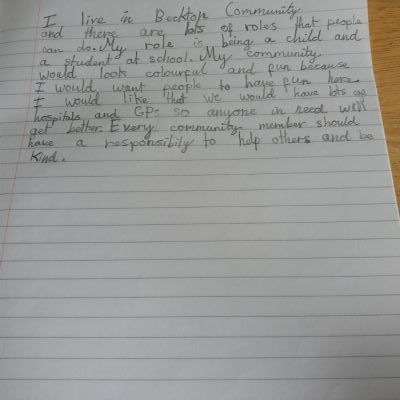 I live in Beckton Community
and there are lots of roles that people
can do. My role is being a child and
a student at school. My community
would look colourful and fun because
I would want people to have fun here
I would like that we would have lots of
hospitals and GPs so anyone in need will
get better. Every community member should
have a responsibily to help others and be
kind.